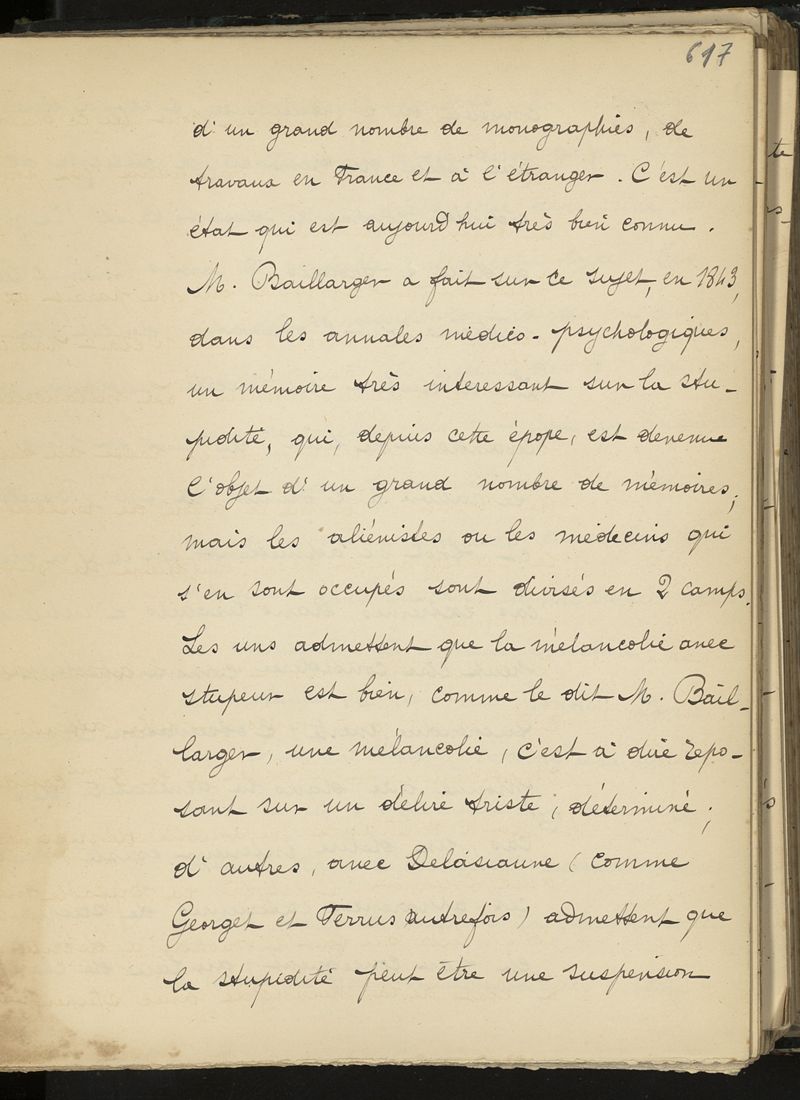 617
d'un grand nombre de monographies, de
travaux en France et à l'étranger. C'est un
état qui est aujourd'hui très bien connu.
M. Baillarger a fait sur ce sujet, en 1843,
dans les annales médico-psychologiques,
un mémoire très interessant sur la stu-
pidité, qui, depuis cette épope, est devenue
l'objet d'un grand nombre de mémoires;
mais les aliénistes ou les médecins qui
s'en sont occupés sont divisés en 2 camps.
Les uns admettent que la mélancolie avec
stupeur est bien, comme le dit M. Bail-
larger, une mélancolie, c'est à dire repo-
sant sur un délire triste, déterminé;
d'autres, avec Delasiauve (comme
Georget et Ferrus autrefois) admettent que
la stupidité peut être une suspension
te